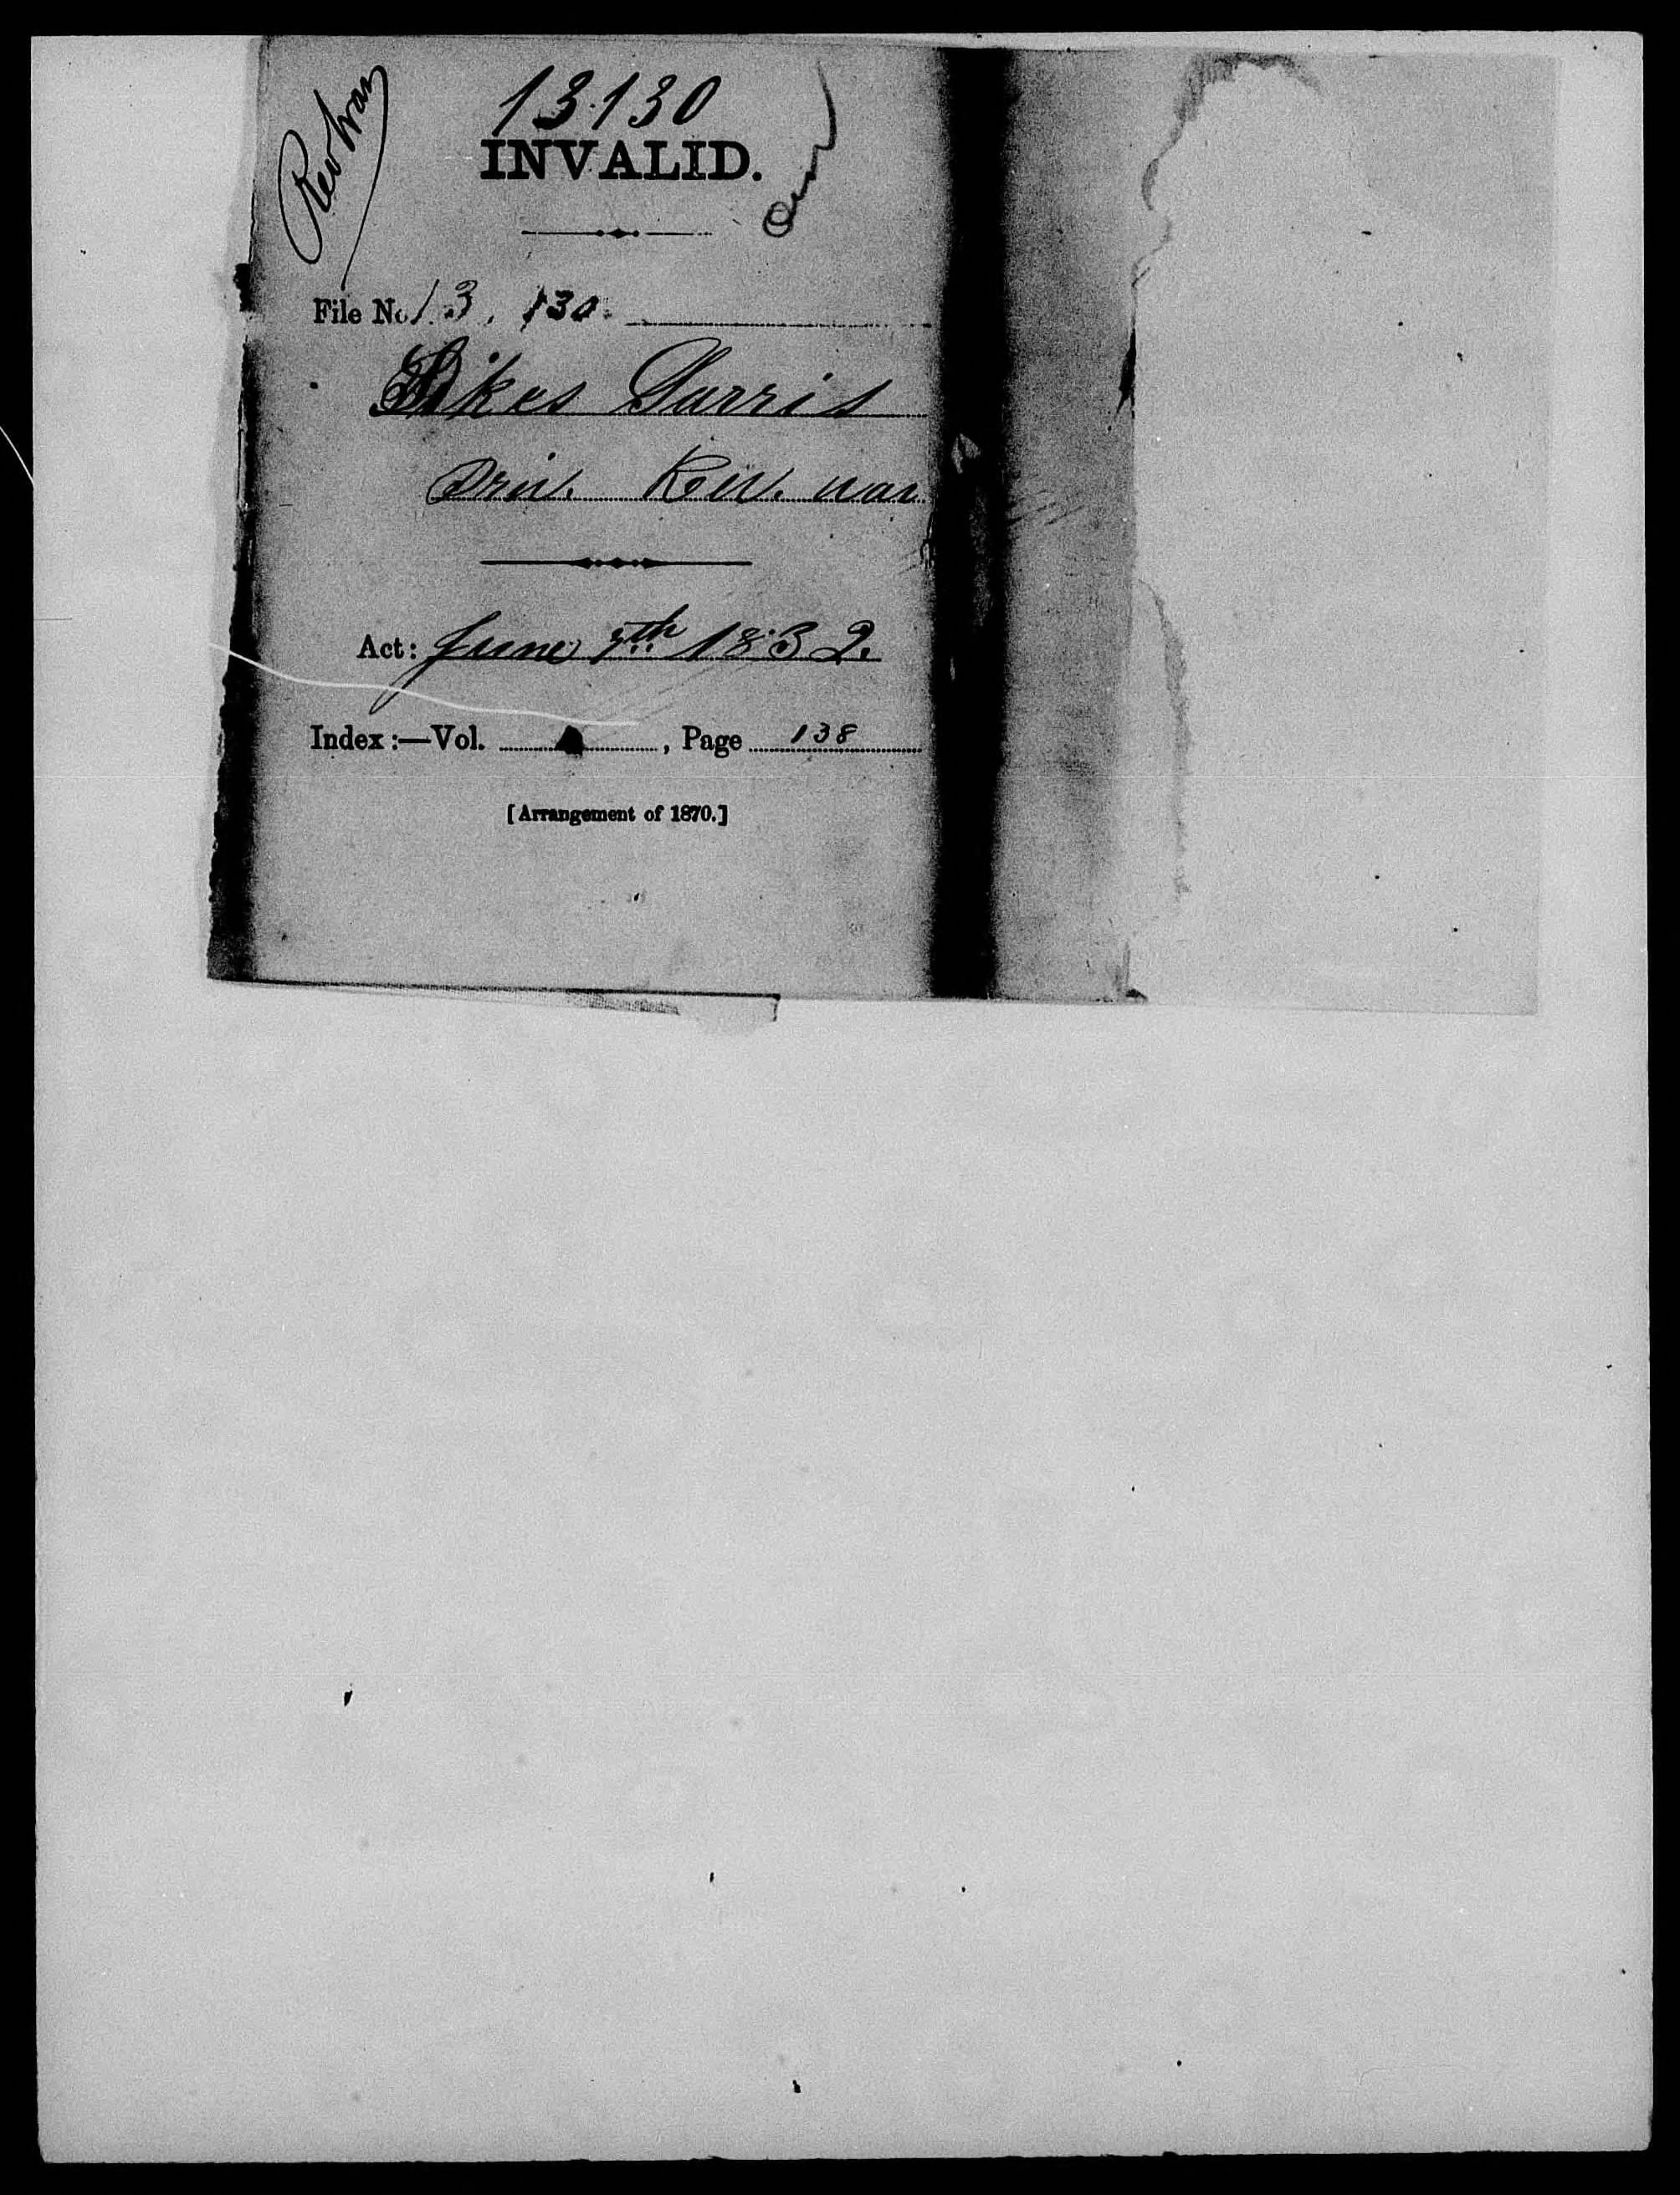 Rev War
13.130
INVALID.
File No 13, 130.
Sikes Garris
Priv. Rev. war
Act: June 7th 1832.
Index:—Vol. , Page 138
[Arrangement of 1870.]